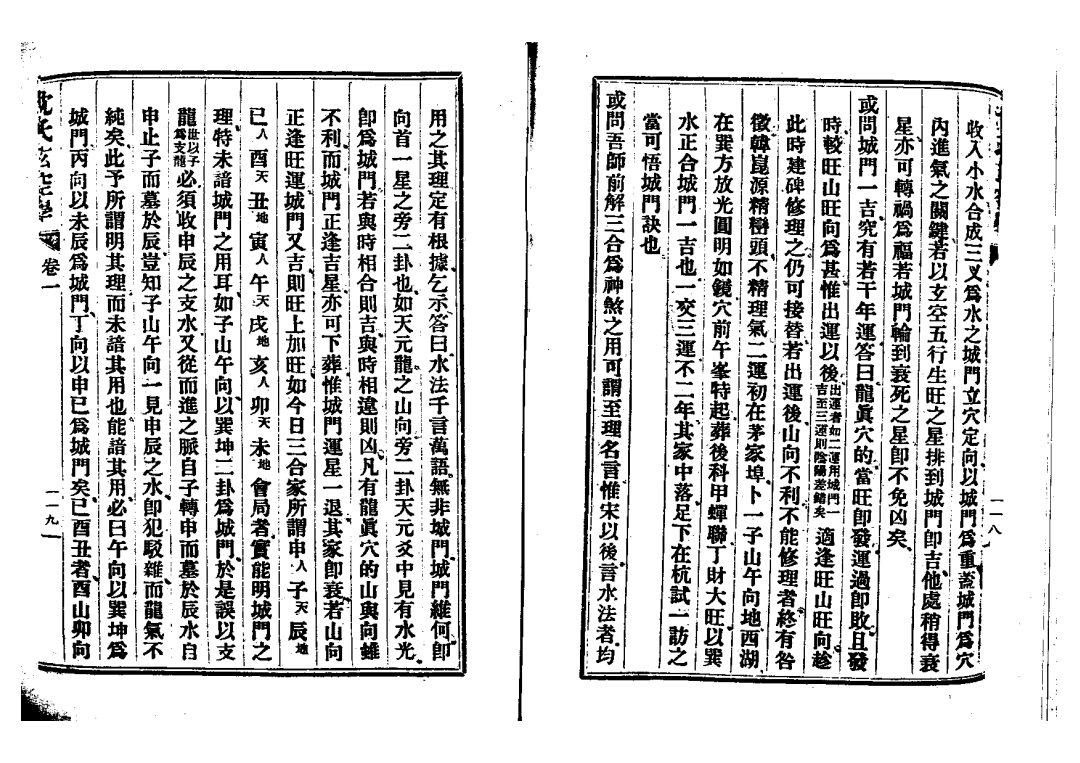 收入小水合成三叉爲水之城門立穴定向以城門爲重蓋城門爲穴
內進氣之關鍵若以玄空五行生旺之星排到城門卽吉他處稍得衰
星亦可轉禍爲福若城門輪到衰死之星卽不免凶矣
或問城門一吉究有若干年運答曰龍眞穴的當旺卽發運過卽敗且發
時較旺山旺向爲甚惟出運以後出運者如二運用城門一吉至三運則陰陽差錯矣適逢旺山旺向趁
此時建碑修理之仍可接替若出運後山向不利不能修理者終有咎
徵韓崑源精巒頭不精理氣二運初在茅家埠卜一子山午向地西湖
在巽方放光圓明如鏡穴前午峯特起葬後科甲蟬聯丁財大旺以巽
水正合城門一吉也一交三運不二年其家中落足下在杭試一訪之
當可悟城門訣也
或問吾師前解三合爲神煞之用可謂至理名言惟宋以後言水法者均
一一八
用之其理定有根據乞示答曰水法千言萬語無非城門城門維何卽
向首一星之旁二卦也如天元龍之山向旁二卦天元爻中見有水光
卽爲城門若與時相合則吉與時相違則凶凡有龍眞穴的山與向雖
不利而城門正逢吉星亦可下葬惟城門運星一退其家卽衰若山向
正逢旺運城門又吉則旺上加旺如今日三合家所謂申人子天辰地
巳人酉天丑地寅人午天戌地亥人卯天未地會局者實能明城門之
理特未諳城門之用耳如子山午向以巽坤二卦爲城門於是誤以支
龍世以子爲支龍必須收申辰之支水又從而進之脈自子轉申而墓於辰水自
申止子而墓於辰豈知子山午向一見申辰之水卽犯駁雜而龍氣不
純矣此予所謂明其理而未諳其用也能諳其用必曰午向以巽坤爲
城門丙向以未辰爲城門丁向以申巳爲城門矣巳酉丑者酉山卯向
沈氏玄空學 卷一
一一九